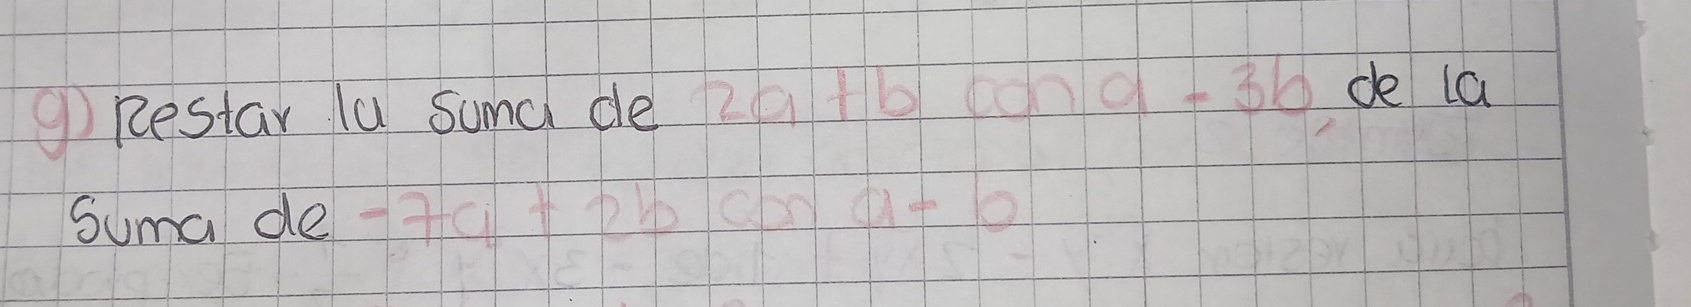 g) Restar la suma de 2a + b con a - 3b, de la
Suma de -7a + 2b con a - b